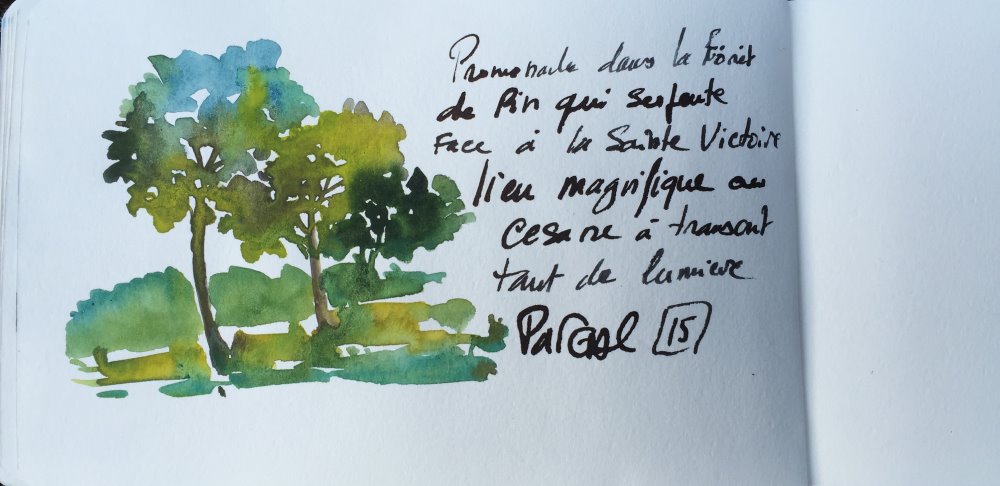 Promenade dans la Fôret
de Pin qui serpente
Face à la Sainte Victoire
lieu magnifique ou
Cesane à transout
tant de lumiere
Pascal 15